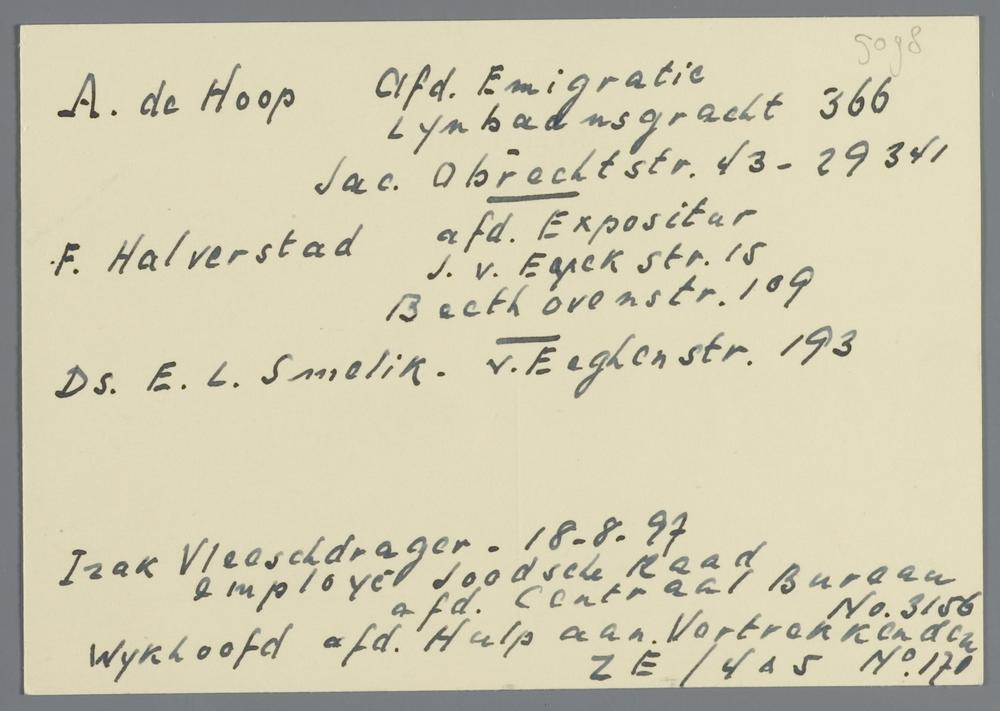 5098
A. de Hoop Afd. Emigratie
Lynbaansgracht 366
Jac. Obrechtstr. 43 - 29341
F. Halverstad afd. Expositur
J. v. Eyck str. 15
Beethovenstr. 109
Ds. E. L. Smelik. v. Eeghenstr. 193
Izak Vleeschdrager. 18-8-97
employé Joodsche Raad
afd. Centraal Bureau
No. 3156
Wykhoofd afd. Hulp aan Vertrekkenden
ZE / 4 a 5 No. 170